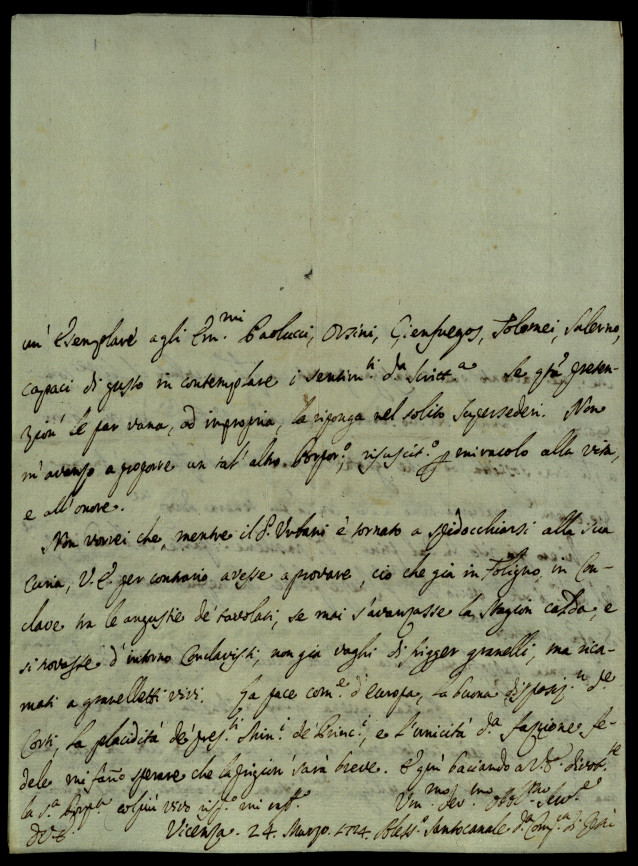 un' Esemplare agli Em.mi Paolucci, Orsini, Cienfuegos, Tolomei, Salerno,
capaci di gusto in contemplare i sentim.ti d.a Scritt.a Se q.ta preten-
zion' le par vana, ad impropria, la riponga nel solito supersederi. Non
m'avanzo a proporre un tal' altro risuscit.o p miracolo alla vita,
e all'onore.
Non vorrei che, mentre il P. Urbano è tornato a spidocchiarsi alla sua
Curia, V.E. per contrario avesse a provare, ciò che già in Foligno, in Con-
clave tra le angustie de' tavolati, se mai s'avanzasse la stagion calda, e
si trovasse d'intorno Conclavisti, non già vaghi di frigger granelli, ma rica-
mati a granelletti vivi. La pace com.e d'Europa, la buona disposiz.n de
Corti, la placidità de' pres.ti Min.i de' Princ.i, e l'unicità d.a fazzione fe-
dele mi fano sperare che la prigion' sarà breve. E qui baciando a V.E. divot.te
la S.a col più vivo risp.o mi
D.V.E. Vicenza. 24. Marzo. 1724. Um.mo Dev.mo Obb.mo Serv.e Santocanale d.a Comp.a di Giesù